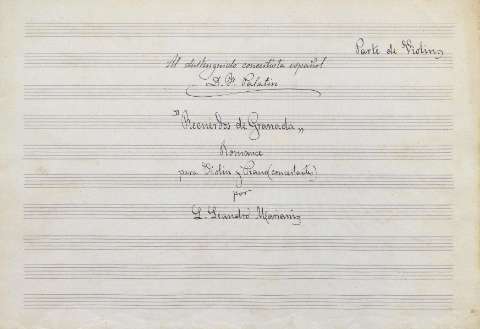 Parte de Violin
Al distinguido concertista español
D. F. Palatin
"Recuerdos de Granada"
Romance
para Violin y Piano (concertante)
por
L. Leandro Mariani